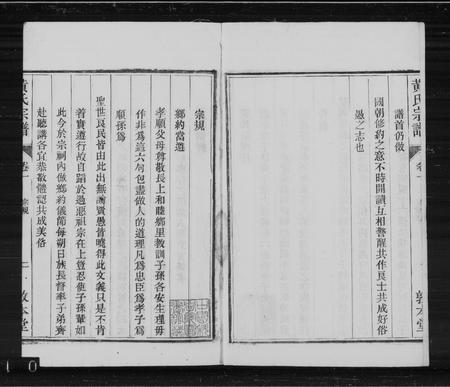 黃氏宗譜
卷一
敦本堂
譜首仍倣
國朝修約之意不時開讀互相警醒共作良士共成好俗
愚之志也
宗規
鄉約當遵
孝順父母尊敬長上和睦鄉里教訓子孫各安生理毋
作非為這六句包盡做人的道理凡為忠臣為孝子為
順孫為
聖世良民皆由此出無論賢愚皆曉得此文義只是不肯
著實遵行故自蹈於過惡祖宗在上豈忍使子孫輩如
此今於宗祠內倣鄉約儀節每朔日族長督率子弟齊
赴聽講各宜恭敬體認共成美俗
黃氏宗譜
卷一
宗規
二
敦本堂